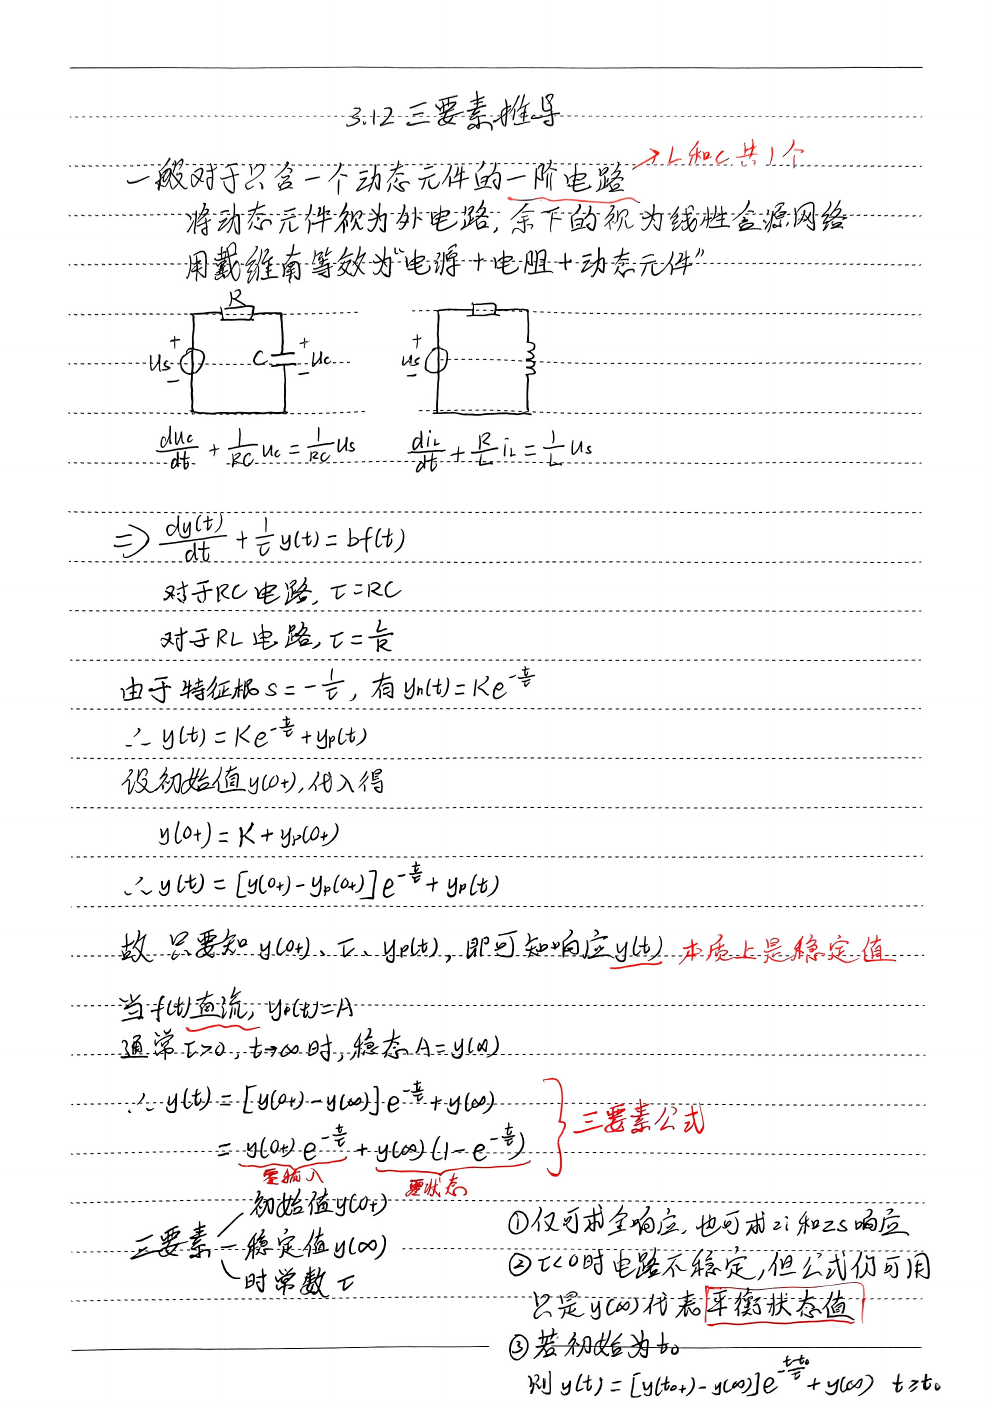 3.12 三要素推导
→L和C共1个
一般对于只含一个动态元件的一阶电路
将动态元件视为外电路,余下的视为线性含源网络
用戴维南等效为“电源+电阻+动态元件”
R
+ Us - C + Uc -
+ Us -
duc/dt + 1/RC uc = 1/RC us    diL/dt + R/L iL = 1/L us
⇒ dy(t)/dt + 1/τ y(t) = bf(t)
对于RC电路, τ=RC
对于RL电路, τ=L/R
由于特征根 s=-1/τ, 有 yh(t)=Ke^(-t/τ)
∴ y(t)=Ke^(-t/τ)+yp(t)
设初始值y(0+),代入得
y(0+)=K+yp(0+)
∴ y(t)=[y(0+)-yp(0+)]e^(-t/τ)+yp(t)
故 只要知 y(0+)、τ、yp(t), 即可知响应y(t) 本质上是稳定值
当f(t)直流, yp(t)=A
通常τ>0, t→∞时, 稳态A=y(∞)
∴ y(t)=[y(0+)-y(∞)]e^(-t/τ)+y(∞)
三要素公式
=y(0+)e^(-t/τ)+y(∞)(1-e^(-t/τ))
零输入 零状态
初始值y(0+)
三要素 - 稳定值y(∞)
时常数τ
①仅可求全响应,也可求zi和zs响应
②τ<0时电路不稳定,但公式仍可用
只是y(∞)代表平衡状态值
③若初始为t₀
则 y(t)=[y(t₀+)-y(∞)]e^(-(t-t₀)/τ)+y(∞) t≥t₀